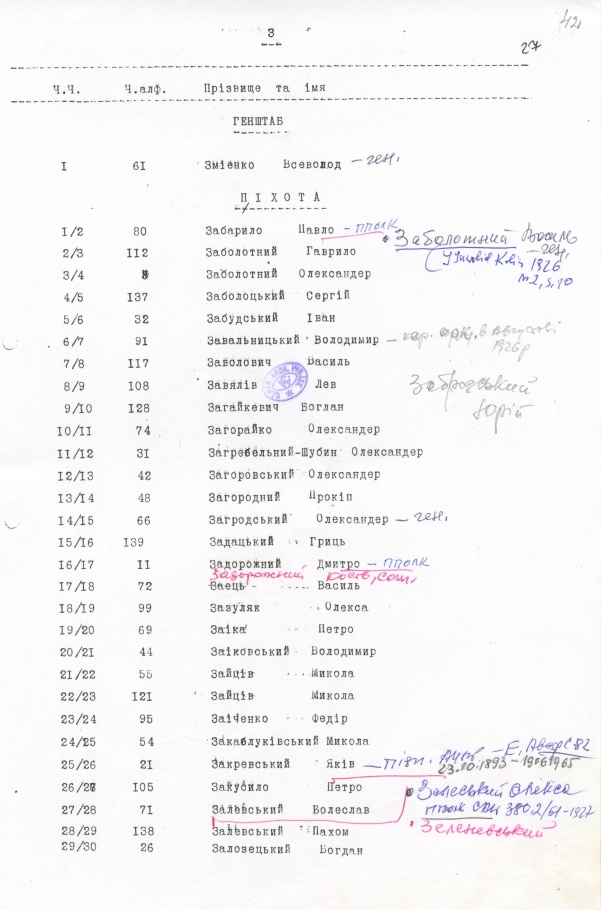 42
3
27
Ч.Ч. Ч.алф. Прізвище та імя
ГЕНШТАБ
I 6I Зміенко Всеволод – ген.
ПІХОТА
I/2 80 Забарило Павло – ППОЛК
Заболотний Василь
– ген.
2/3 II2 Заболотний Гаврило
1926
№2, s. 10
3/4 8 Заболотний Олександер
4/5 I37 Заболоцький Сергій
5/6 32 Забудський Іван
6/7 9I Завальницький Володимир –
1926р
7/8 II7 Заволович Василь
8/9 I08 Завялів Лев
Забродський
Юрій
9/I0 I28 Загайкевич Богдан
I0/II 74 Загорайко Олександер
II/I2 3I Загребельний-Шубин Олександер
I2/I3 42 Загоровський Олександер
I3/I4 48 Загородний Прокіп
I4/I5 66 Загродський Олександер – ген.
I5/I6 I39 Задацький Гриць
I6/I7 II Задорожний Дмитро – ППОЛК
Задорожний Кость, сот.
I7/I8 72 Заець Василь
I8/I9 99 Зазуляк Олекса
I9/20 69 Заіка Петро
20/2I 44 Заіковський Володимир
2I/22 55 Зайців Микола
22/23 I2I Зайців Микола
23/24 95 Заіченко Федір
24/25 54 Закаблуківський Микола
25/26 2I Закревський Яків –
23.10.1893 –
26/27 I05 Закусило Петро
Залеський Олекса
27/28 7I Залевський Болеслав
28/29 I38 Залевський Пахом
Зеленевський
29/30 26 Залозецький Богдан